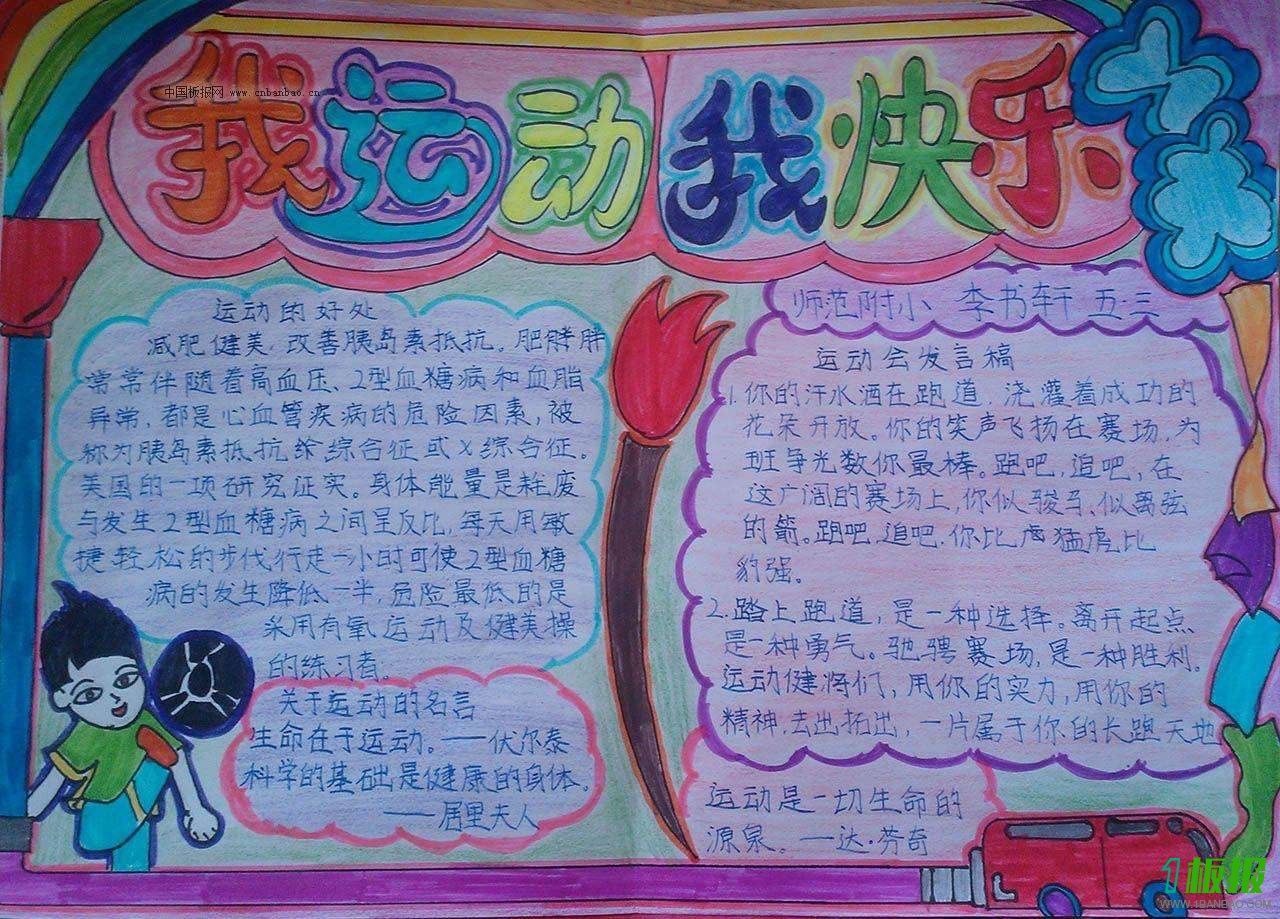 我运动我快乐
中国板报网 www.cnbanbao.cn
运动的好处
减肥健美,改善胰岛素抵抗。肥胖胖
常常伴随着高血压、2型血糖病和血脂
异常,都是心血管疾病的危险因素,被
称为胰岛素抵抗综合征或X综合征。
美国的一项研究证实。身体能量是耗废
与发生2型血糖病之间呈反比,每天用敏
捷轻松的步代行走一小时可使2型血糖
病的发生降低一半,危险最低的是
采用有氧运动及健美操
的练习者。
关于运动的名言
生命在于运动。——伏尔泰
科学的基础是健康的身体。
——居里夫人
师范附小 李书轩 五·三
运动会发言稿
1.你的汗水洒在跑道,浇灌着成功的
花朵开放。你的笑声飞扬在赛场,为
班争光数你最棒。跑吧,追吧,在
这广阔的赛场上,你似骏马,似离弦
的箭。跑吧,追吧,你比虎猛虎比
豹强。
2.踏上跑道,是一种选择。离开起点
是一种勇气。驰骋赛场,是一种胜利。
运动健将们,用你的实力,用你的
精神,去出拓出,一片属于你的长跑天地
运动是一切生命的
源泉。—达·芬奇
1板报
WWW.1BANBAO.COM